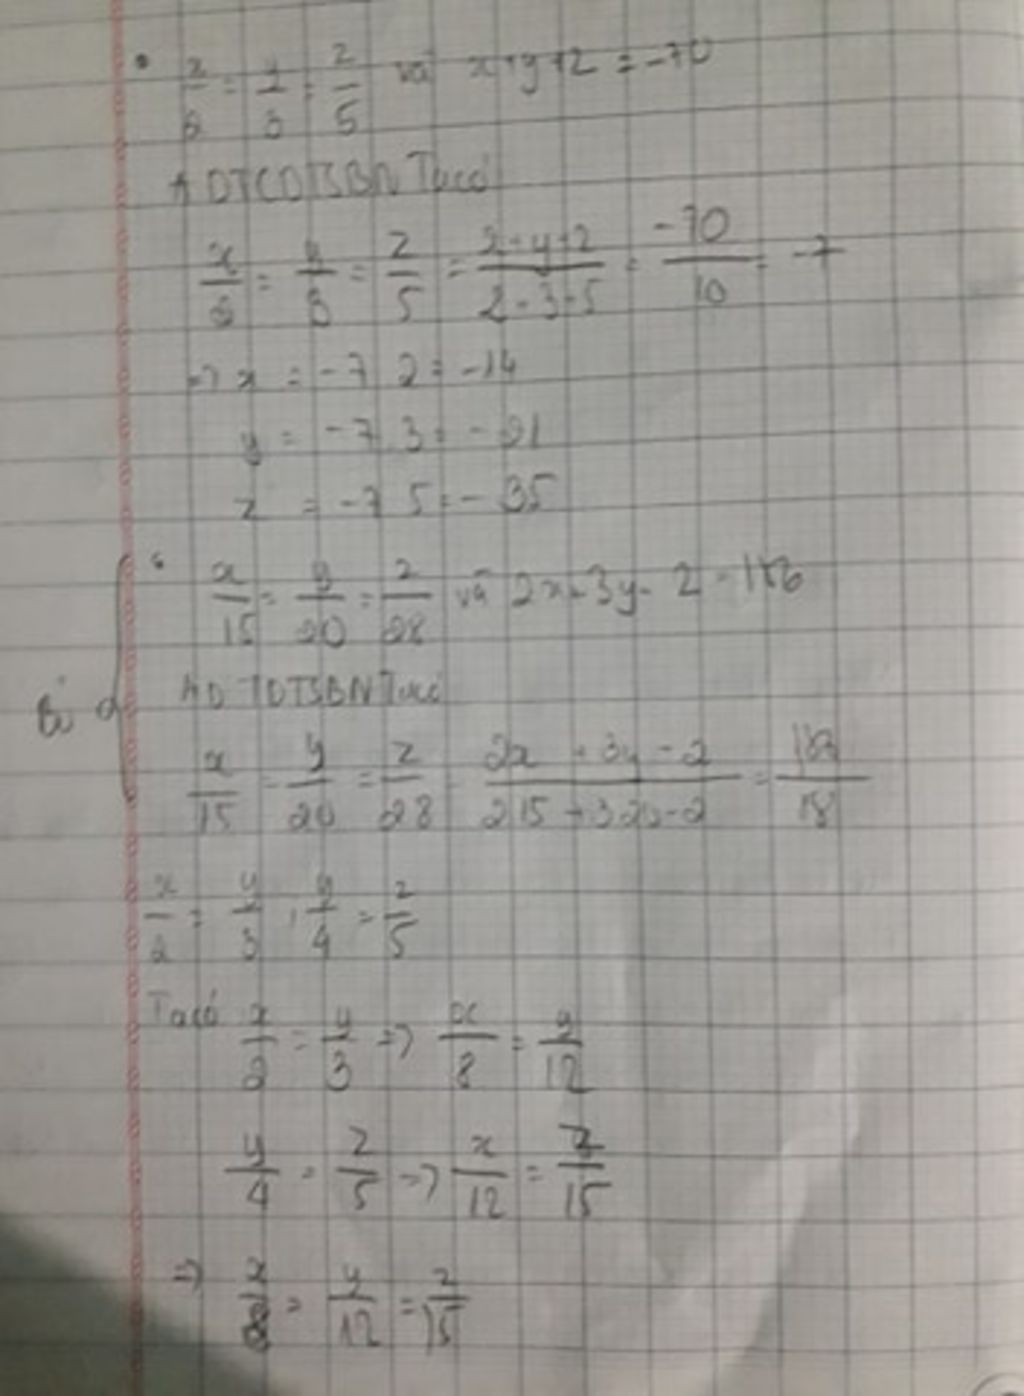 x/2 = y/3 = z/5 và x+y+z = -70
ADTCDTSBN Ta có
x/2 = y/3 = z/5 = x+y+z/2+3+5 = -70/10 = -7
=> x = -7.2 = -14
y = -7.3 = -21
z = -7.5 = -35
x/15 = y/20 = z/28 và 2x+3y-z = 186
AD TDTSBN Ta có
x/15 = y/20 = z/28 = 2x+3y-z/2.15+3.20-2 =
x/2 = y/3, y/4 = z/5
Ta có x/2 = y/3 => x/8 = y/12
y/4 = z/5 => x/12 = z/15
=> x/8 = y/12 = z/15